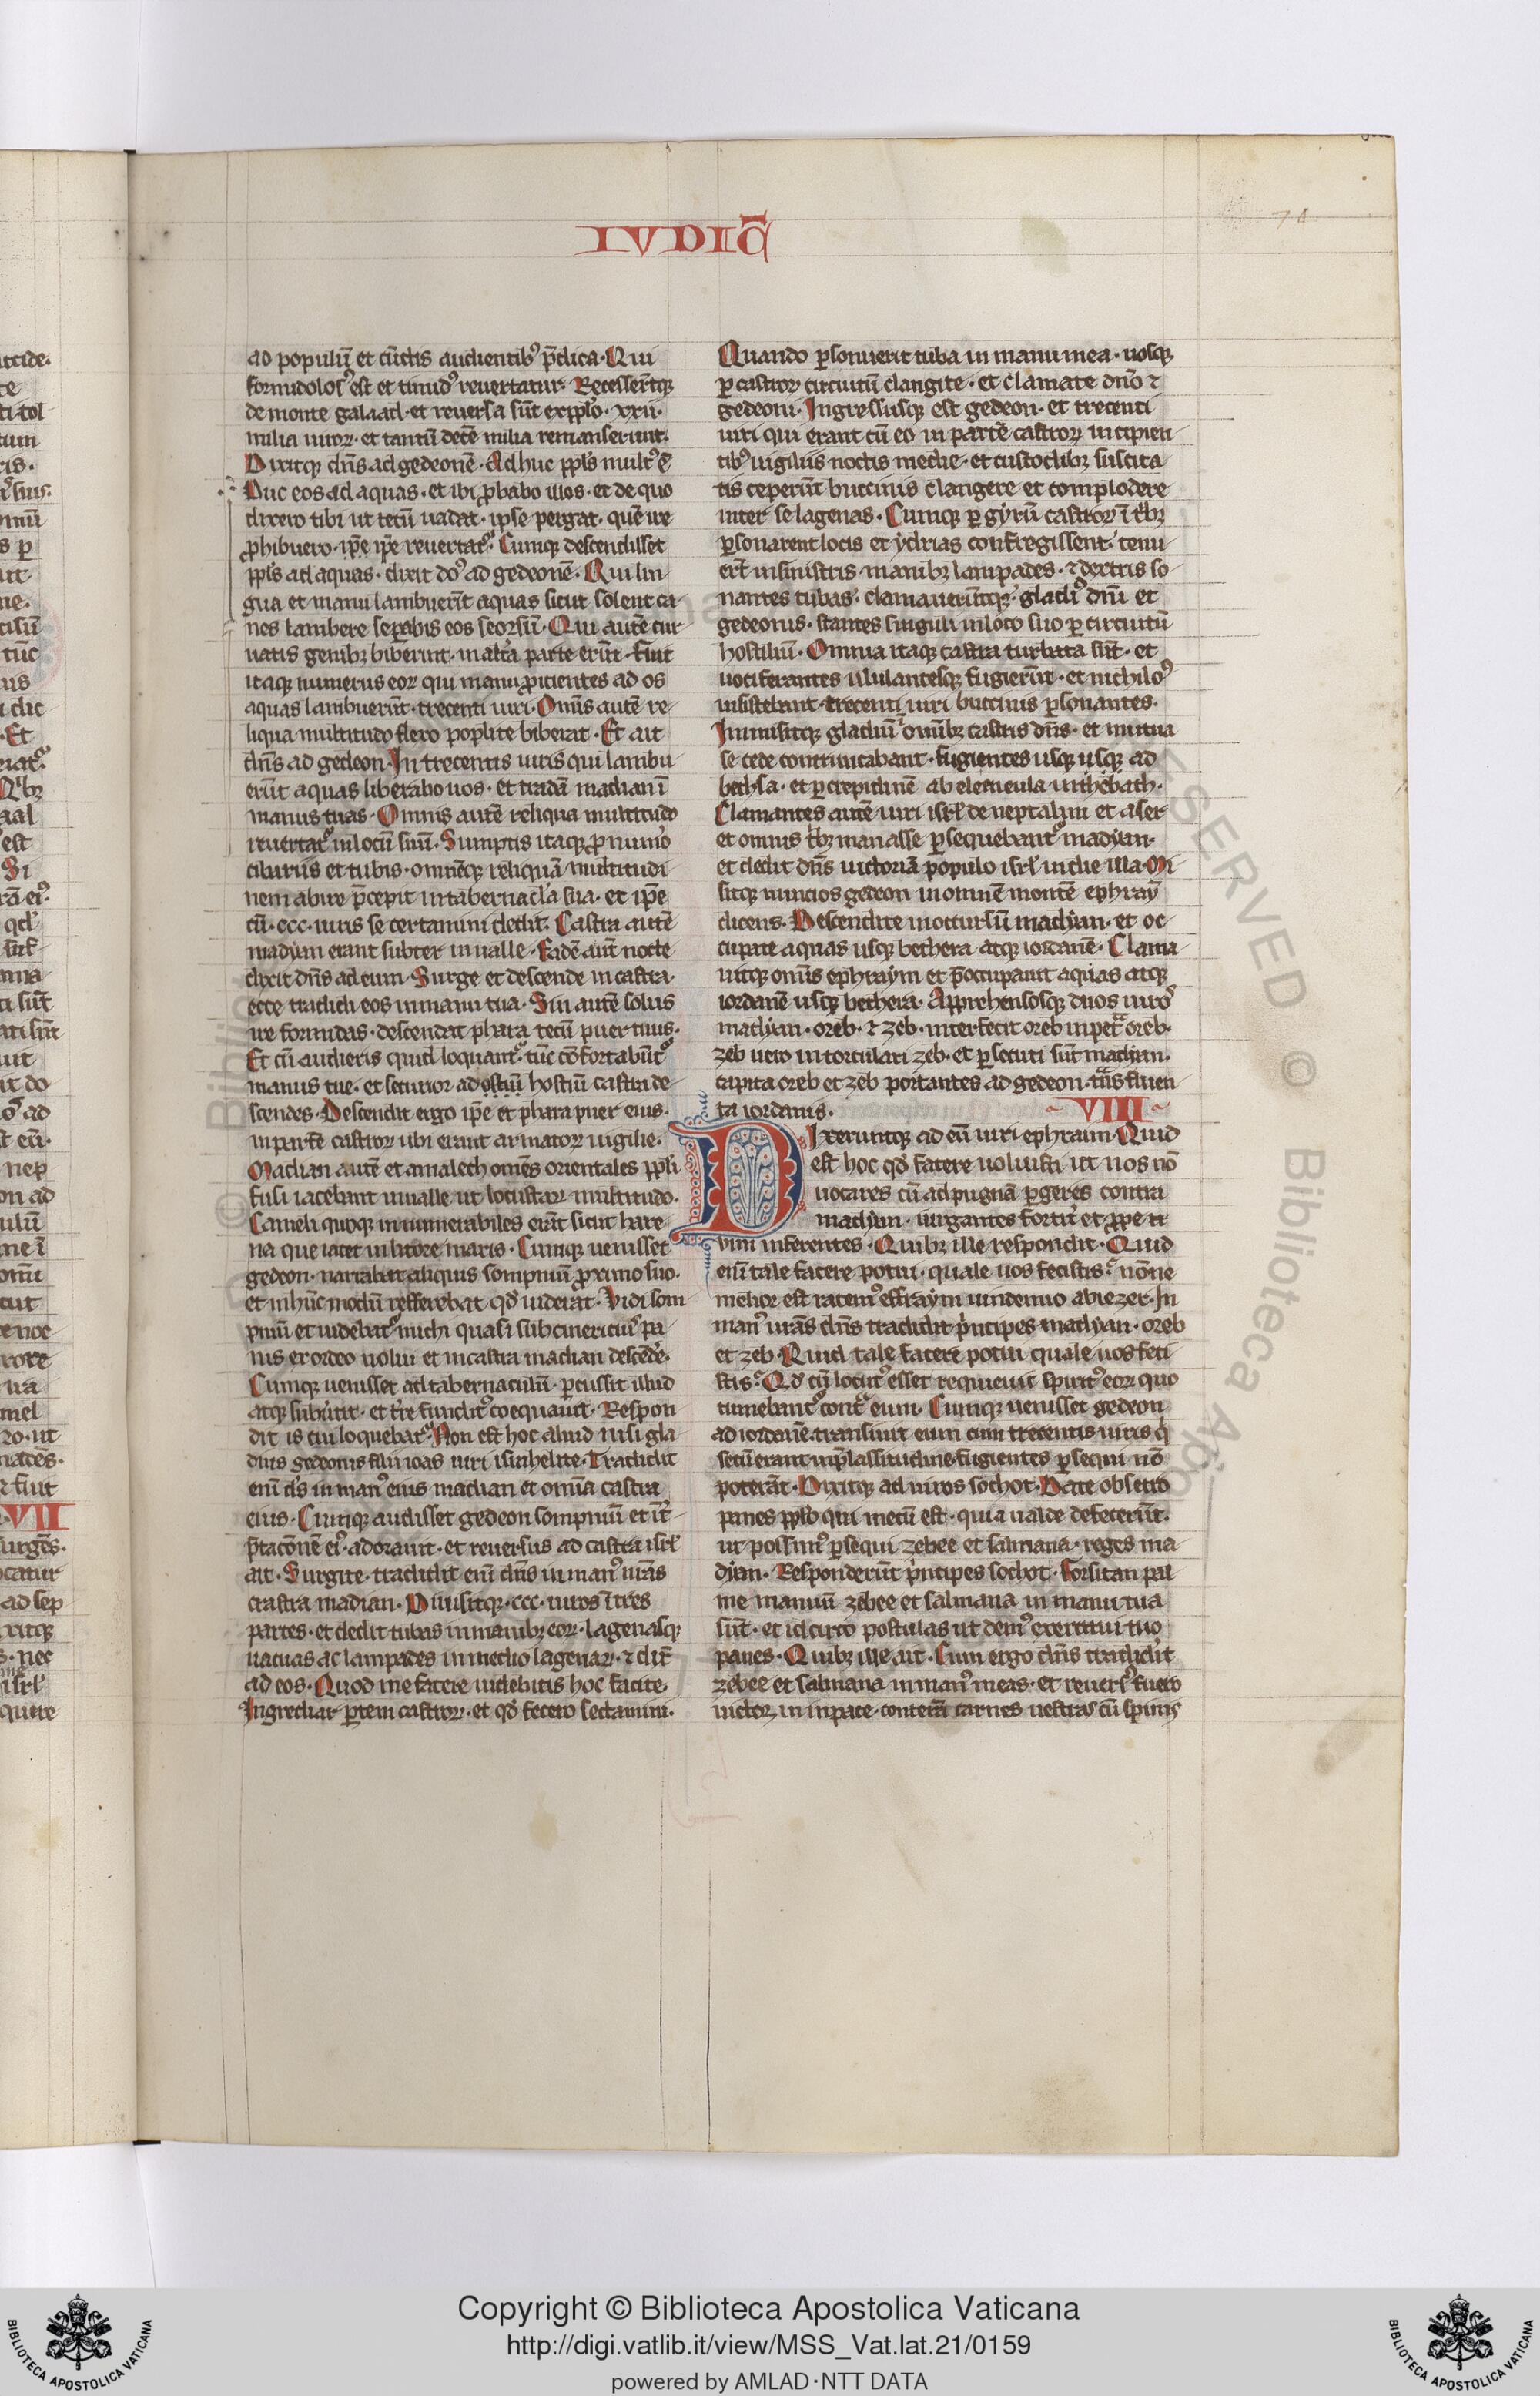 IVDIC̄
ad populū et cūctis audientib⁹ p̄dica · Qui
formidolos⁹ est et timid⁹ reuertatur · Recesserūtqꝫ
de monte galaad · et reuersa sūt ex pp̄lo · xxii ·
milia uiroꝝ · et tantū decē milia remanserunt ·
Dixitqꝫ dn̄s ad gedeonē · Adhuc pp̄ls mult⁹ ē
Duc eos ad aquas · et ibi ꝓbabo illos · et de quo
dixero tibi ut tecū uadat · ipse pergat · quē ire
ꝓhibuero · ip̄e reuertat᷑ · Cumqꝫ descendisset
pp̄ls ad aquas · dixit do⁹ ad gedeonē · Qui lin
gua et manu lambuerīt aquas sicut solent ca
nes lambere seꝑabis eos seorsū · Qui autē cur
uatis genibꝫ biberint · in alt̄a parte erūt · Fuit
itaqꝫ numerus eoꝝ qui manu ꝓicientes ad os
aquas lambuerūt · trecenti uiri · Om̄s autē re
liqua multitudo flexo poplite biberat · Et ait
dn̄s ad gedeon · In trecentis uiris qui lambu
erūt aquas liberabo uos · et tradā madian ī
manus tuas · Omnis autē reliqua multitudo
reuertat᷑ in locū suū · Sumptis itaqꝫ ꝓ num̄o
cibariis et tubis · omnēqꝫ reliquā multitudi
nem abire p̄cepit in tabernac̄la sua · et ip̄e
cū · ccc · uiris se certamini dedit · Castra autē
madyan erant subter in ualle · Eadē aut̄ nocte
dixit dn̄s ad eum · Surge et descende in castra ·
ecce tradidi eos in manu tua · Sin autē solus
ire formidas · descendat phara tecū puer tuus ·
Et cū audieris quid loquant᷑ · tūc cōfortabūt᷑
manus tue · et securior ad ostiū hostiū castra de
scendes · Descendit ergo ip̄e et phara puer eius ·
in partē castroꝝ ubi erant armatoꝝ uigilie ·
Madian autē et amalech om̄s orientales pp̄li
fusi iacebant in ualle ut locustaꝝ multitudo ·
Cameli quoqꝫ innumerabiles erāt sicut hare
na que iacet in litore maris · Cumqꝫ uenisset
gedeon · narrabat aliquis sompniū ꝓximo suo ·
et in hūc modū refferebat qd̄ uiderat · Vidi som
pniū et uidebat᷑ michi quasi subcinericiu⁹ pa
nis ex ordeo uolui et in castra madian descēde᷑ ·
Cumqꝫ uenisset ad tabernaculū · ꝑcussit illud
atqꝫ subuertit · et t̄re fundit⁹ coequauit · Respon
dit is cui loquebat᷑ · Non est hoc aliud nisi gla
dius gedeonis filii ioas uiri israhelite · Tradidit
enī d̄s in man⁹ eius madian et omīa castra
eius · Cumqꝫ audisset gedeon sompniū et īt̄
p̄tacōnē ei⁹ · adorauit · et reuersus ad castra isr̄l
ait · Surgite · tradidit enī dn̄s in man⁹ ur̄as
castra madian · Diuisitqꝫ · ccc · uiros ī tres
partes · et dedit tubas in manibꝫ eoꝝ · lagenasqꝫ
uacuas ac lampades in medio lagenaꝝ · ⁊ dix̄
ad eos · Quod me facere uidebitis hoc facite ·
Ingrediar ꝑtem castroꝝ · et qd̄ fecero sectamini ·
Quando ꝑsonuerit tuba in manu mea · uosqꝫ
ꝑ castroꝝ circuitū clangite · et clamate dn̄o ⁊
gedeoni · Ingressusqꝫ est gedeon · et trecenti
uiri qui erant cū eo in partē castroꝝ incipien
tib⁹ uigiliis noctis medie · et custodibꝫ suscita
tis ceperūt buccinis clangere et complodere
inter se lagenas · Cumqꝫ ꝑ gyrū castroꝝ ī t̄bꝫ
ꝑsonarent locis et ydrias confregissent · tenu
er̄t in sinistris manibꝫ lampades · ⁊ dextris so
nantes tubas · clamauerūtqꝫ · gladi⁹ dn̄i et
gedeonis · stantes singuli in loco suo ꝑ circuitū
hostiliū · Omnia itaqꝫ castra turbata sūt · et
uociferantes ululantesqꝫ fugierūt · et nichilo⁹
insistebant · trecenti uiri buccinis ꝑsonantes ·
Immisitqꝫ gladiū om̄ibꝫ castris dn̄s · et mutua
se cede contruncabant · fugientes usqꝫ usqꝫ ad
bethsa · et ꝑ crepidinē ab elemeula in thebath ·
Clamantes autē uiri isr̄l de neptalim et aser
et omnis t̄bꝫ manasse ꝑsequebant᷑ madyan ·
et dedit dn̄s uictoriā populo isr̄l in die illa · Mi
sitqꝫ nuncios gedeon in omnē montē ephraȳ
dicens · Descendite in occursūm madyan · et oc
cupate aquas usqꝫ bethera atqꝫ iordanē · Clama
uitqꝫ om̄is ephraym et p̄occupauit aquas atqꝫ
iordanē usqꝫ bethera · Apprehensosqꝫ duos uiro⁹
madyan · oreb · ⁊ zeb · interfecit oreb in pet̄ oreb ·
zeb uero in torculari zeb · et ꝑsecuti sūt madyan ·
capita oreb et zeb portantes ad gedeon · tn̄s fluen
ta iordanis ·
VIII
Dixeruntqꝫ ad eū uiri ephraim · Quid
est hoc qd̄ facere uoluisti ut nos nō
uocares cū ad pugnā ꝑgeres contra
madyan · iurgantes fortit᷑ et ꝓpe
uim inferentes · Quibꝫ ille respondit · Quid
enī tale facere potui · quale uos fecistis · nōne
melior est racem⁹ effraym uindemio abiezer · In
man⁹ ur̄as dn̄s tradidit p̄ncipes madyan · oreb
et zeb · Quid tale facere potui quale uos feci
stis · Qd̄ cū locut⁹ esset requieuit spirit⁹ eoꝝ quo
tumebant᷑ cont̄ eum · Cumqꝫ uenisset gedeon
ad iordanē transiuit eum cum trecentis uiris q̄
secū erant · et p̄ lassitudine fugientes ꝑsequi nō
poterāt · Dixitqꝫ ad uiros sochot · Date obsecro
panes pp̄lo qui mecū est · quia ualde defecerūt ·
ut possim⁹ ꝑsequi zebee et salmana · reges ma
dyan · Responderūt p̄ncipes sochot · Forsitan pal
me manuū zebee et salmana in manu tua
sūt · et idcirco postulas ut dem⁹ exercitui tuo
panes · Quibꝫ ille ait · Cum ergo dn̄s tradid̄it
zebee et salmana in man⁹ meas · et reuers⁹ fuero
uictor in pace · conterā carnes uestras cū spinis
Copyright © Biblioteca Apostolica Vaticana
http://digi.vatlib.it/view/MSS_Vat.lat.21/0159
powered by AMLAD·NTT DATA